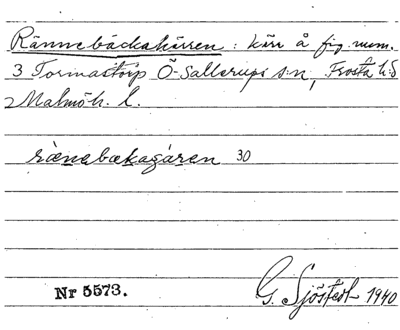 Rännebäckakärren: kärr å fig. num.
3 Tormastorp Ö-Sallerups s:n, Frosta h:d
Malmöh. l.
rænebækagáren 30
Nr 5573.
G. Sjöstedt 1940